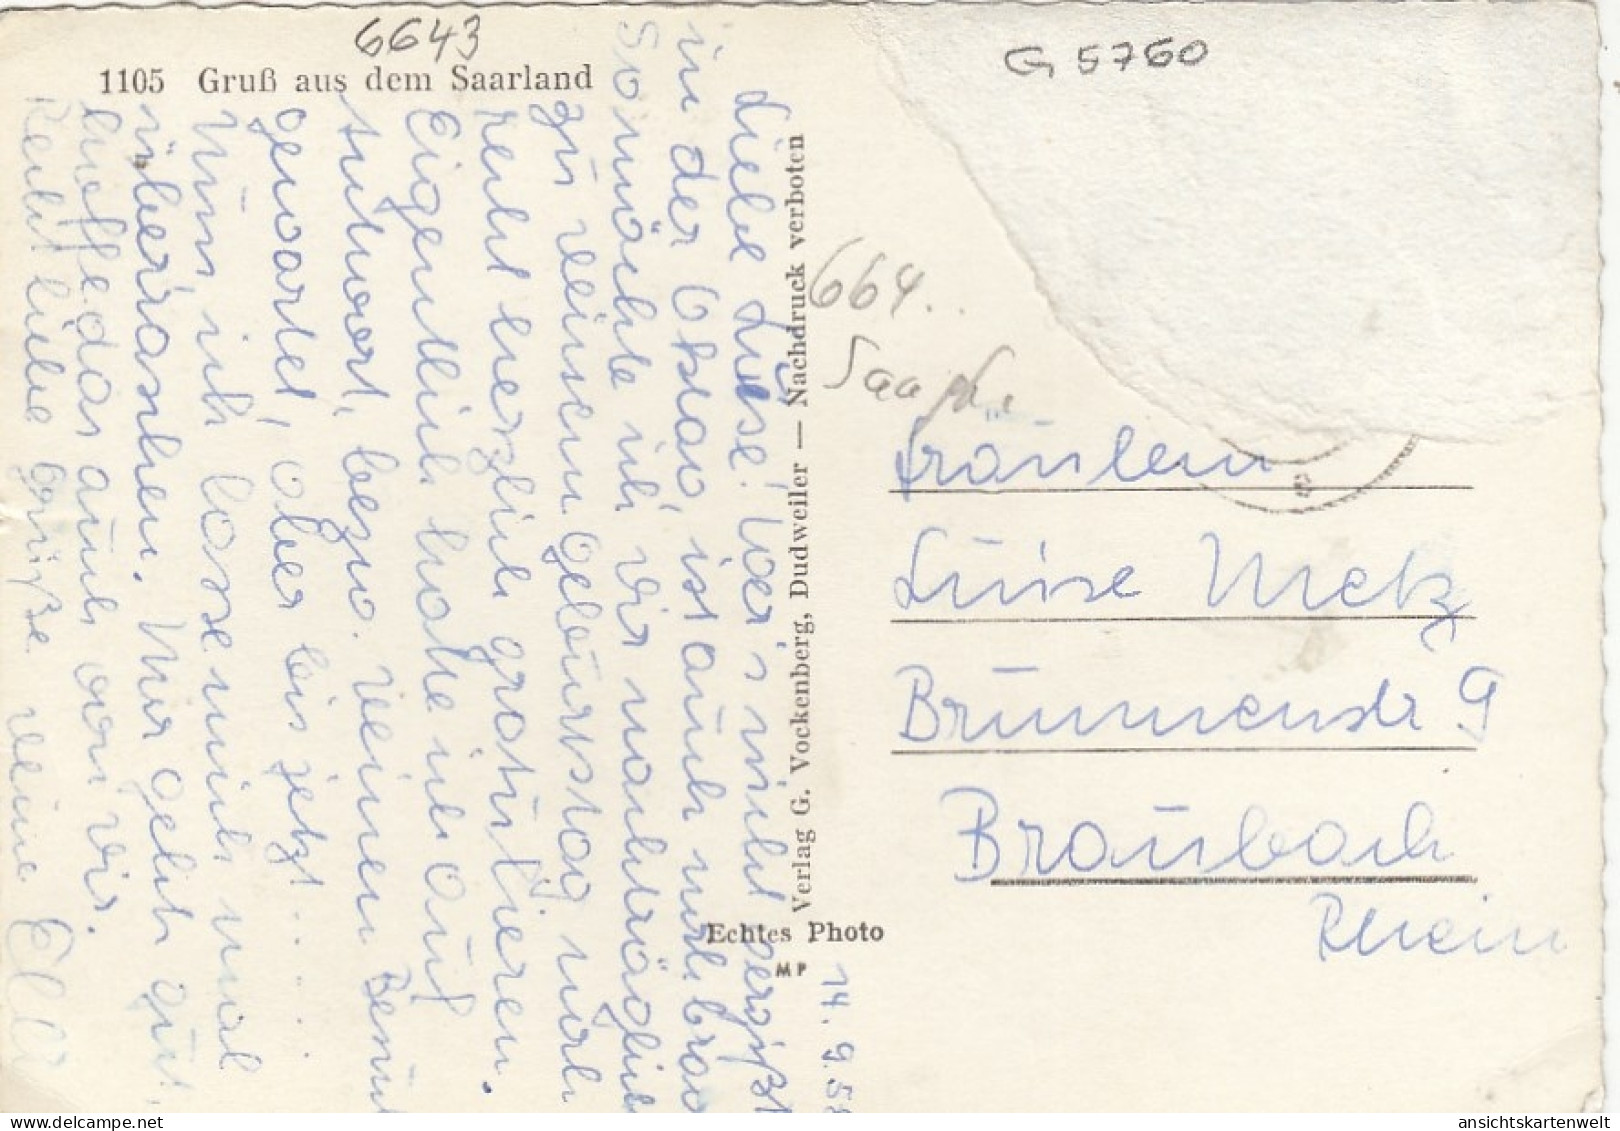 6643
G 5760
1105 Gruß aus dem Saarland
14. 9. 5
Liebe Luise! Wer's nicht vergißt
in der Obhao, ist auch noch brav
So möchte ich Dir nachträglich
zu Deinem Geburtstag noch
recht herzlich gratulieren.
Eigentlich habe ich auf
Antwort, bezw. Deinen Besuch
gewartet, aber bis jetzt . . . . .
Nun ich lasse mich mal
überraschen. Mir geht gut,
hoffe das auch von Dir.
Recht liebe Grüße Deine Elli
Verlag G. Vockenberg, Dudweiler — Nachdruck verboten
Echtes Photo
MP
664..
Fräulein
Luise Metz
Brunnenstr 9
Braubach
Rhein
ansichtskartenwelt